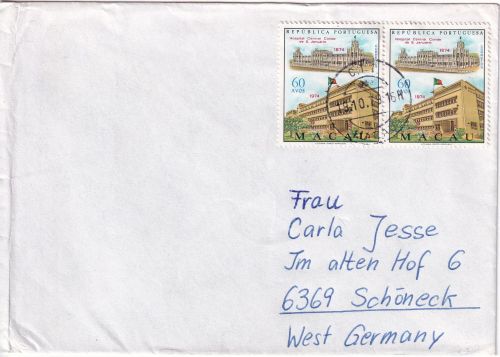 REPÚBLICA PORTUGUESA
Hospital Central Conde
de S. Januário
1874
60
AVOS
1974
MACAU
REPÚBLICA PORTUGUESA
Hospital Central Conde
de S. Januário
1874
60
AVOS
1974
MACAU
Frau
Carla Jesse
Im alten Hof 6
6369 Schöneck
West Germany